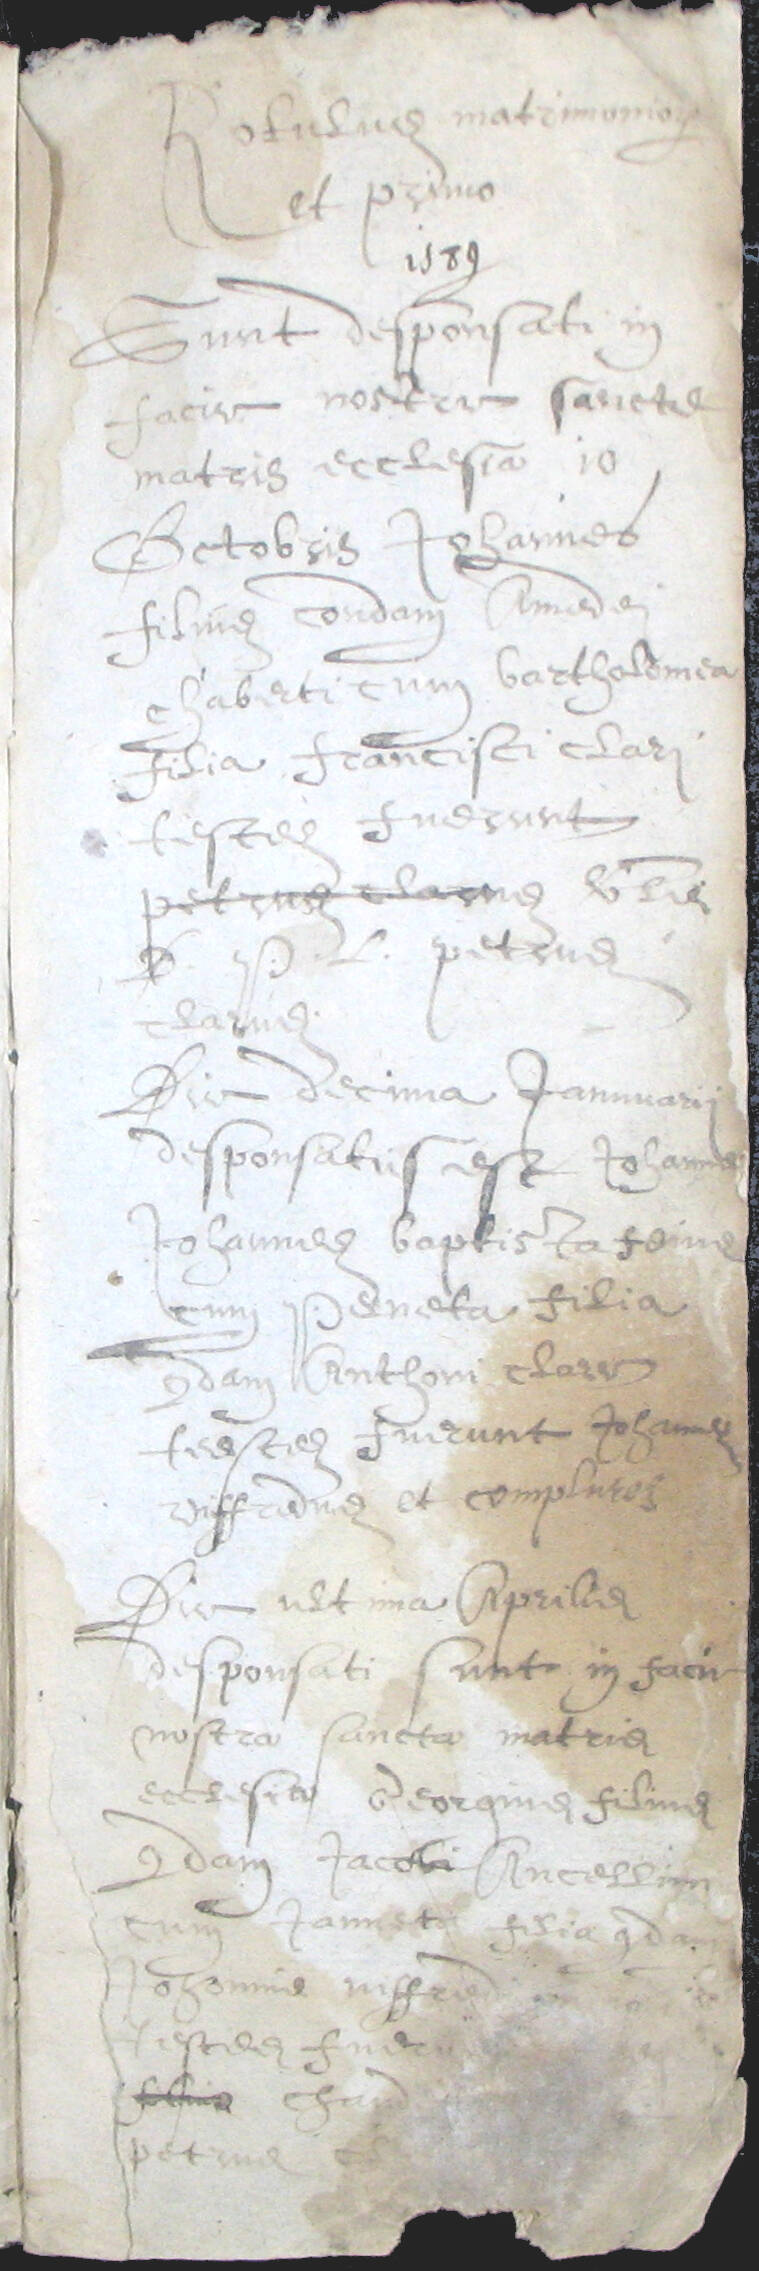 Rotulus matrimonior
et primo
1589
Sunt desponsati in
facie nostre sancte
matris ecclesia 10
Octobris Johannes
filius condam Amedei
Chaberti cum bartholomea
filia francisci clari
testes fuerunt
petrus clarus
D. P. L. petrus
clarus
Die decima Jannuarii
desponsatus est Johannes
Johannes baptista
cum filia
qdam Anthoni clare
testes fuerunt Johannes
et complures
Die ultima Aprilis
desponsati sunt in facie
nostra sancta matris
ecclesia Georgius filius
qdam Jacobi Ancellini
cum Janneta filia qda
Johannis
testes fuer
filius
petrus